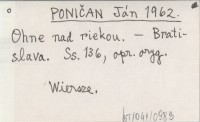 PONIČAN Ján 1962.
Ohne nad riekou. – Brati-
slava. Ss. 136, opr. oryg.
Wiersze.